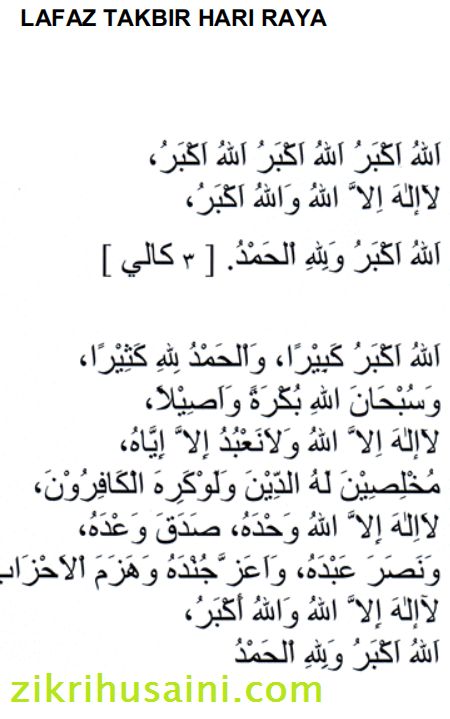 LAFAZ TAKBIR HARI RAYA
اَللهُ اَكْبَرُ اَللهُ اَكْبَرُ اَللهُ اَكْبَرُ،
لاَإِلٰهَ اِلاَّ اللهُ وَاللهُ اَكْبَرُ،
اَللهُ اَكْبَرُ وَلِلهِ الْحَمْدُ. [ ٣ كالي ]
اَللهُ اَكْبَرُ كَبِيْرًا، وَالْحَمْدُ لِلهِ كَثِيْرًا،
وَسُبْحَانَ اللهِ بُكْرَةً وَاَصِيْلاً،
لاَإِلٰهَ اِلاَّ اللهُ وَلاَنَعْبُدُ إِلاَّ إِيَّاهُ،
مُخْلِصِيْنَ لَهُ الدِّيْنَ وَلَوْكَرِهَ الْكَافِرُوْنَ،
لاَاِلٰهَ إِلاَّ اللهُ وَحْدَهُ، صَدَقَ وَعْدَهُ،
وَنَصَرَ عَبْدَهُ، وَاَعَزَّجُنْدَهُ وَهَزَمَ الْاَحْزَاب
لَآإِلٰهَ إِلاَّ اللهُ وَاللهُ أَكْبَرُ،
اَللهُ اَكْبَرُ وَلِلهِ الْحَمْدُ
zikrihusaini.com